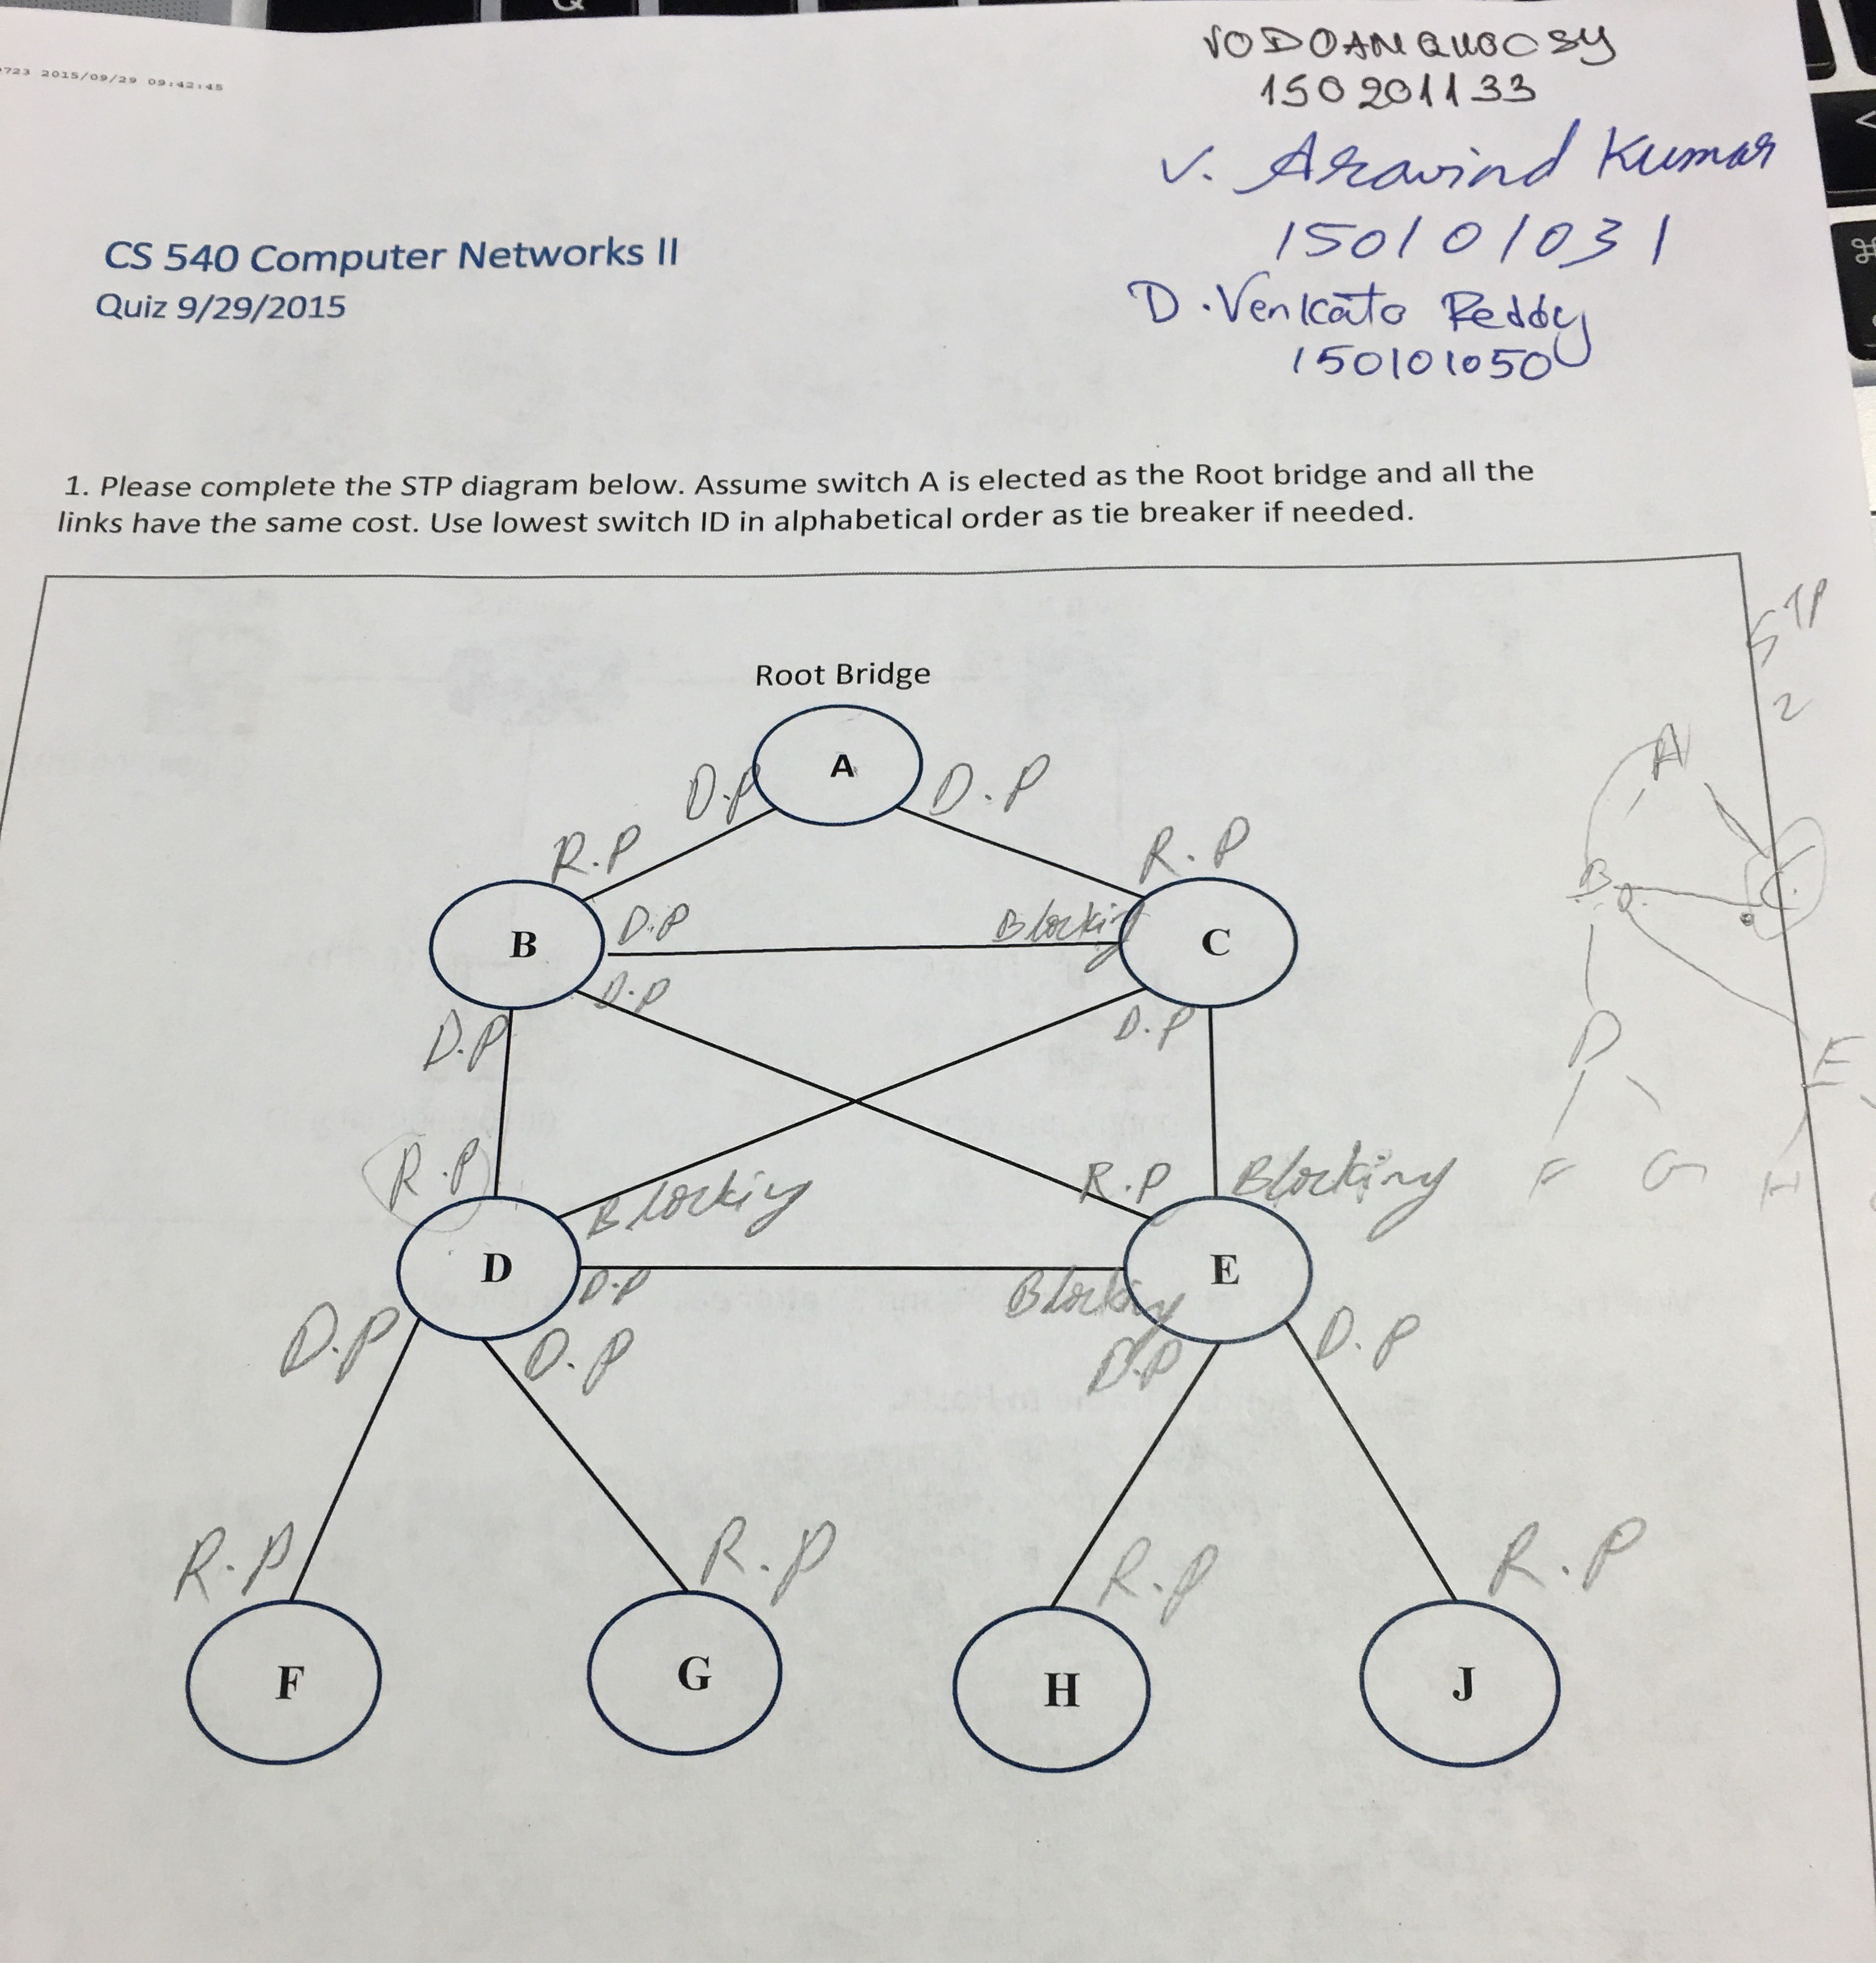 723 2015/09/29 09:42:45
VODOANQUOCSY
150201133
V. Aravind Kumar
150101031
D.Venkata Reddy
150101050
CS 540 Computer Networks II
Quiz 9/29/2015
1. Please complete the STP diagram below. Assume switch A is elected as the Root bridge and all the
links have the same cost. Use lowest switch ID in alphabetical order as tie breaker if needed.
STP
2
Root Bridge
A
D.P
D.P
R.P
R.P
B
D.P
Blocking
C
D.P
D.P
D.P
R.P
Blocking
R.P
Blocking
D
D.P
Blocking
E
D.P
D.P
D.P
D.P
R.P
R.P
R.P
R.P
F
G
H
J
A
B
C
D
E
F
G
H